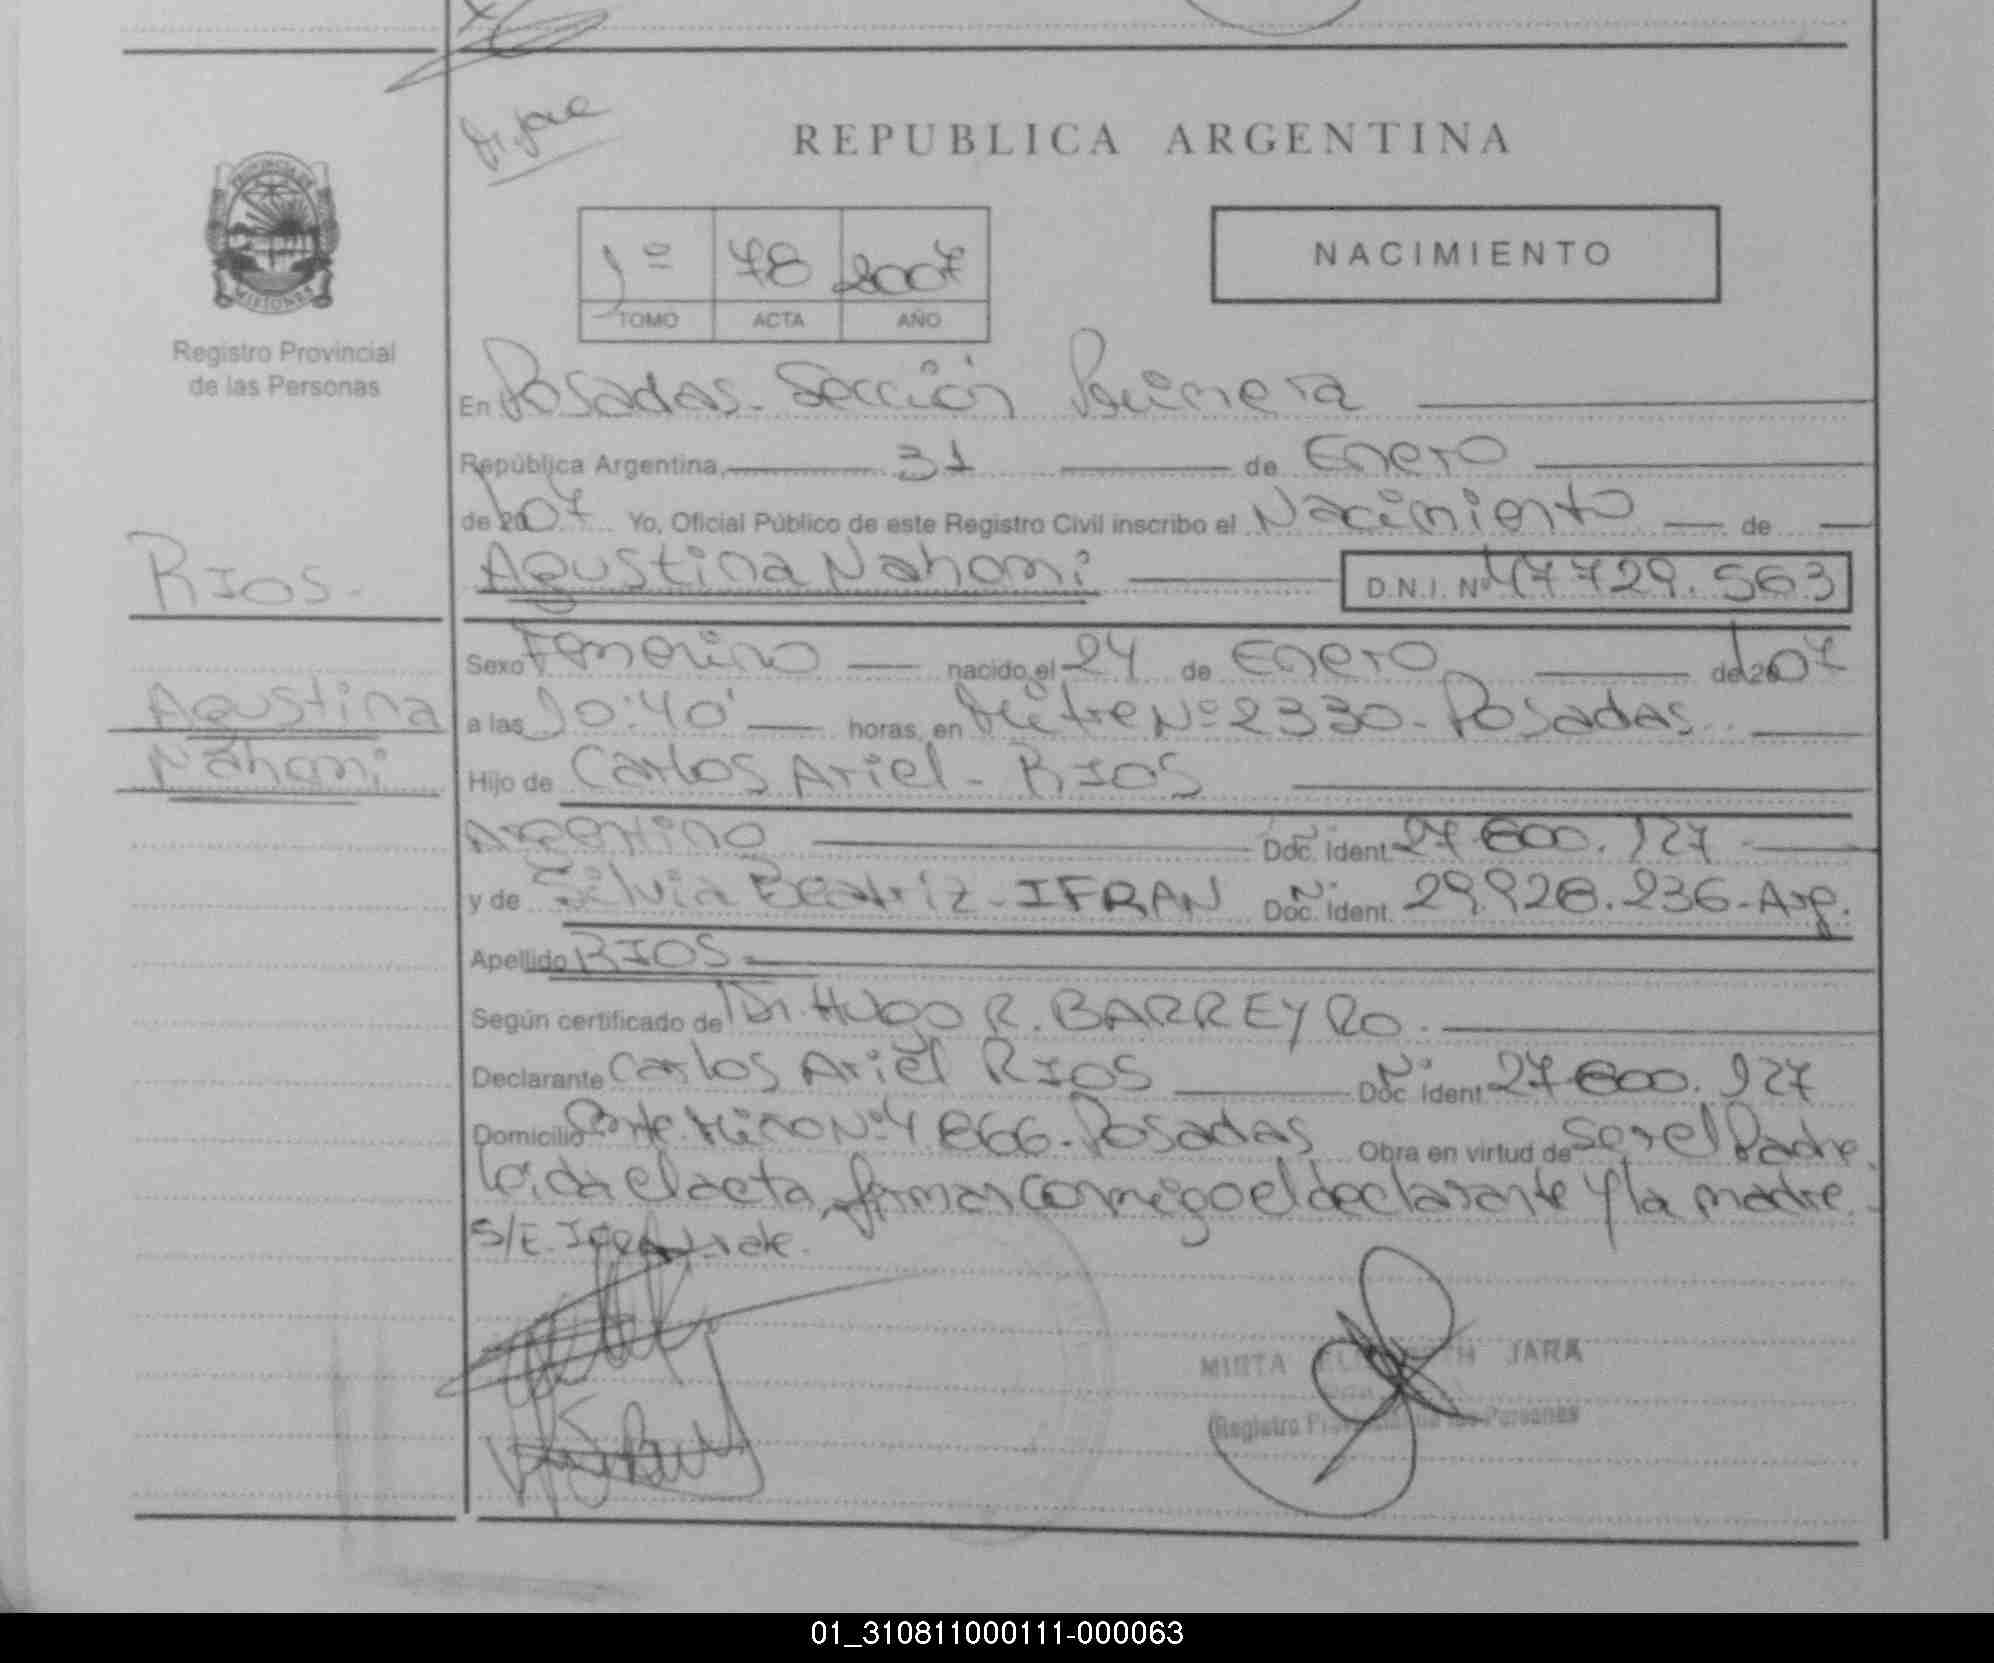 REPUBLICA ARGENTINA
PROVINCIA DE
MISIONES
Registro Provincial
de las Personas
1º 78 2007
TOMO ACTA AÑO
NACIMIENTO
En Posadas. Sección Primera
República Argentina, 31 de Enero
de 2007 Yo, Oficial Público de este Registro Civil inscribo el Nacimiento de
Agustina Nahomi D.N.I. Nº 47729.563
RIOS.
Agustina
Nahomi
Sexo Femenino nacido el 24 de Enero de 2007
a las 10:40' horas, en Mitre Nº 2330-Posadas
Hijo de Carlos Ariel - RIOS
Argentino Doc. Ident. 27.600.127
y de Silvia Beatriz - IFRAN Doc. Ident. 29.928.236-Arg.
Apellido RIOS.
Según certificado de Dr. Hugo R. BARREYRO.
Declarante Carlos Ariel RIOS Nº Doc. Ident. 27.600.127
Domicilio Nº 4866-Posadas Obra en virtud de Ser el Padre.
leída el acta, firman conmigo el declarante y la madre.
S/E.
MIRTA ELIZABETH JARA
Registro Provincial de las Personas
01_310811000111-000063